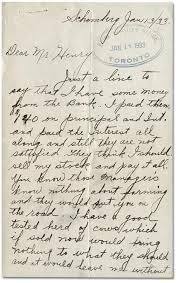 Schomberg Jan, 17/33.
JAN 19 1933
TORONTO
Dear Mr. Henry
Just a line to
say that I have some money
from the Bank. I paid them
$40 on principal and Ind.
and paid the interest all
along and still they are not
satisfied. They think I should
sell my stock and pay it all.
You know those managers
know nothing about farming
and they would put you on
the road. I have a good
tested herd of cows which if
sold now would bring
nothing to what they should
and it would leave me without